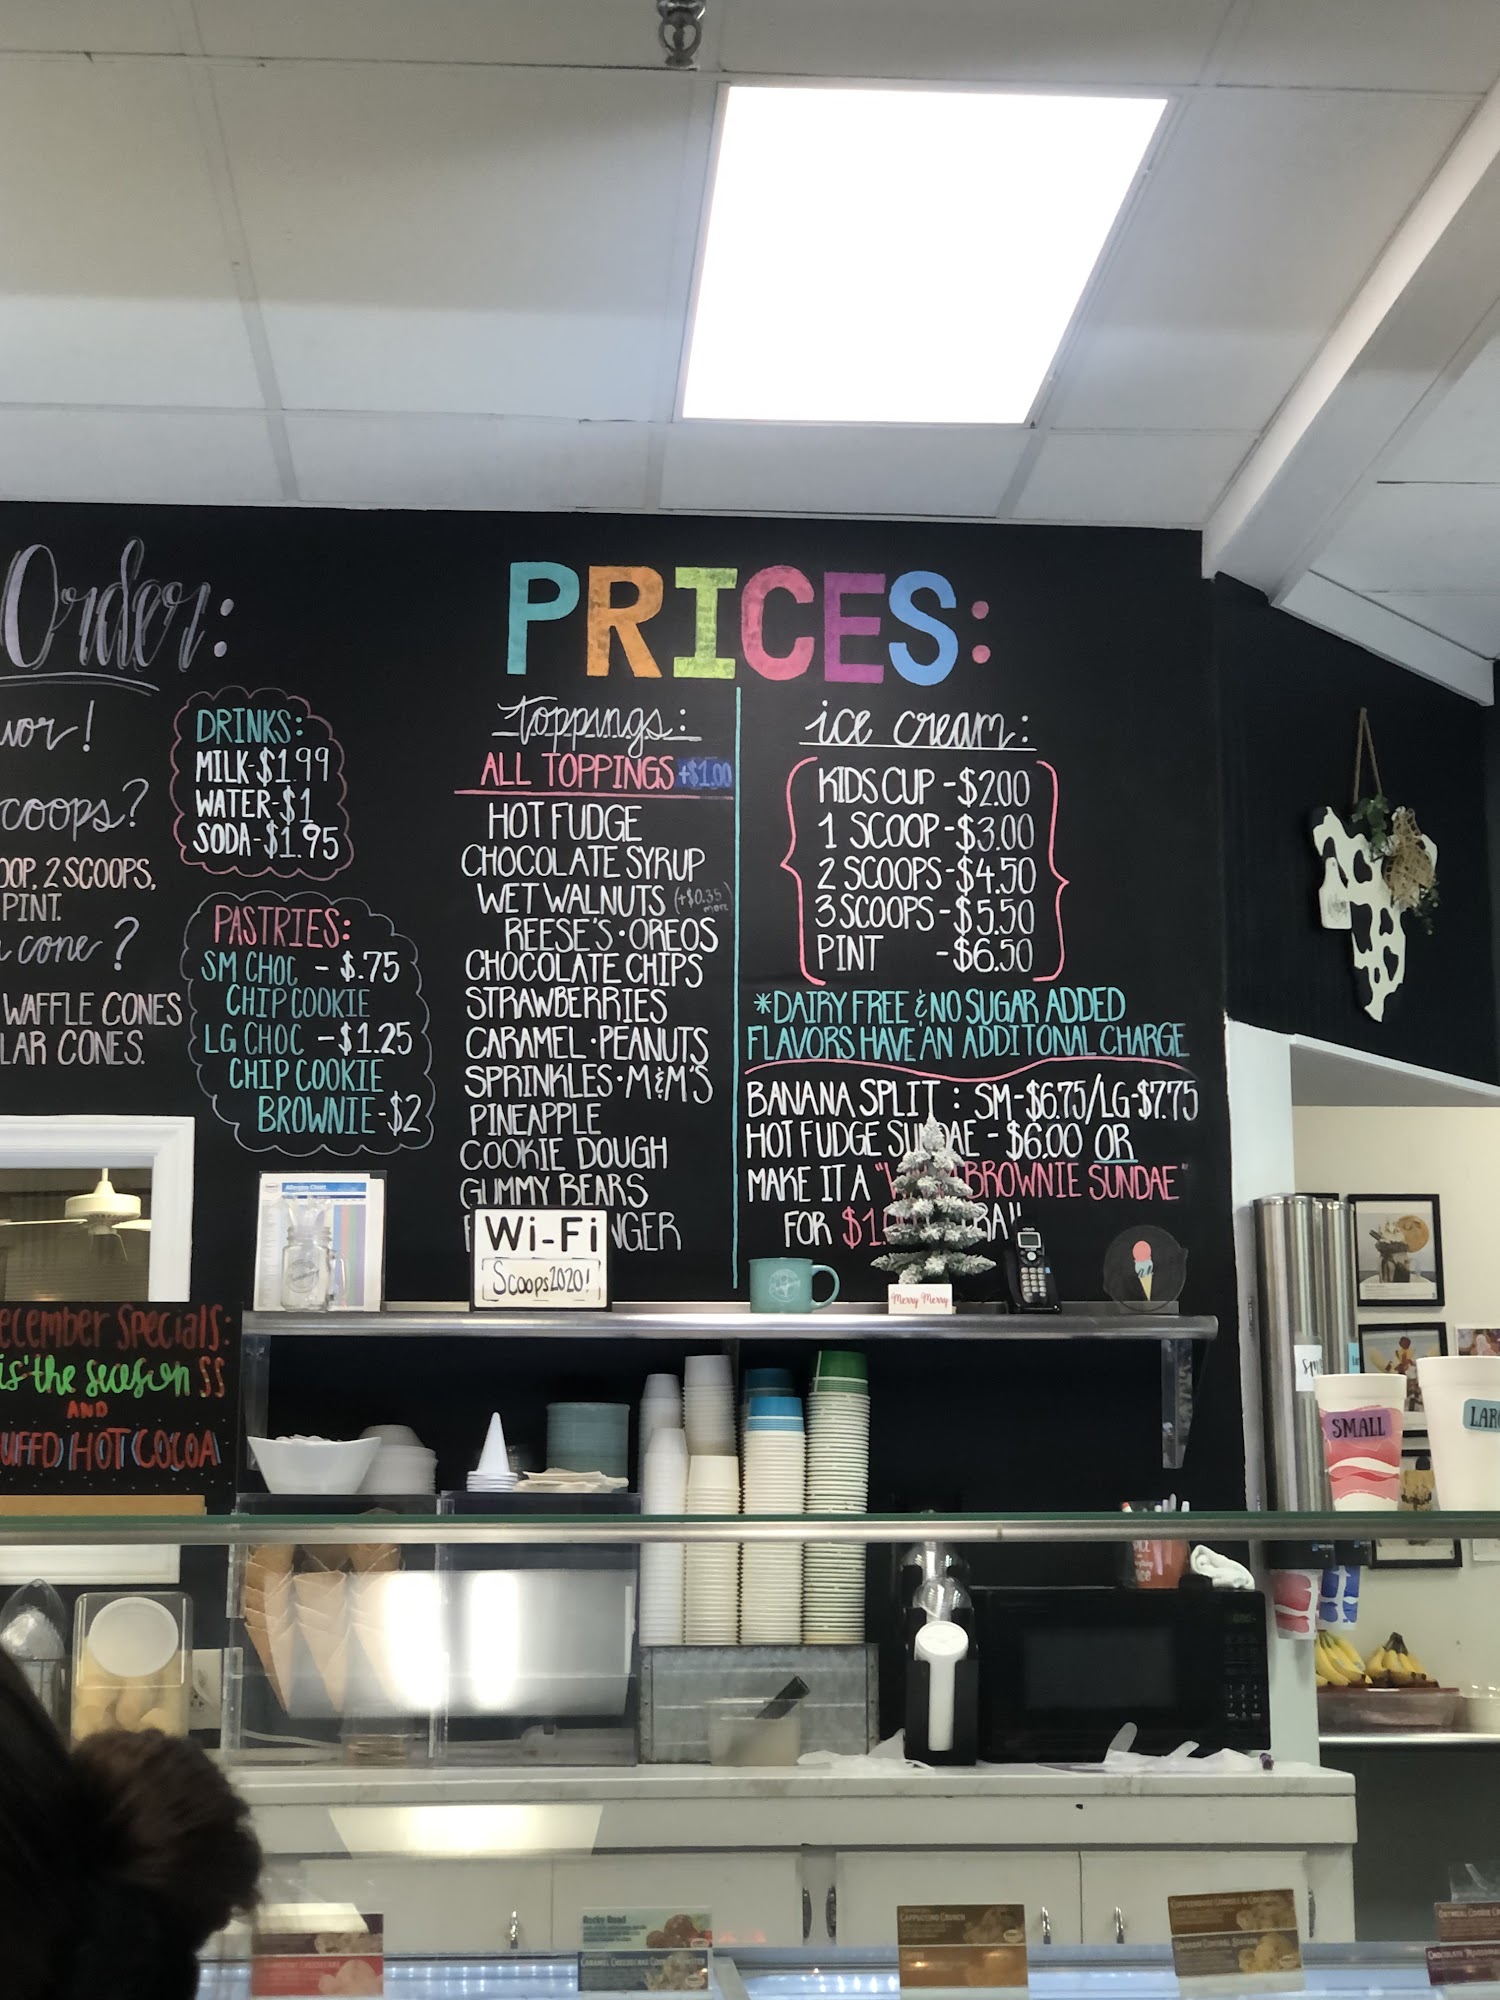 Order:
vor!
coops?
OOP, 2 SCOOPS,
PINT.
cone?
WAFFLE CONES
LAR CONES.
DRINKS:
MILK-$1.99
WATER-$1
SODA-$1.95
PASTRIES:
SM CHOC - $.75
CHIP COOKIE
LG CHOC - $1.25
CHIP COOKIE
BROWNIE-$2
PRICES:
toppings:
ALL TOPPINGS +$1.00
HOT FUDGE
CHOCOLATE SYRUP
WET WALNUTS (+$0.35 more)
REESE'S · OREOS
CHOCOLATE CHIPS
STRAWBERRIES
CARAMEL · PEANUTS
SPRINKLES · M&M'S
PINEAPPLE
COOKIE DOUGH
GUMMY BEARS
NGER
ice cream:
KIDS CUP - $2.00
1 SCOOP - $3.00
2 SCOOPS - $4.50
3 SCOOPS - $5.50
PINT - $6.50
*DAIRY FREE & NO SUGAR ADDED
FLAVORS HAVE AN ADDITONAL CHARGE
BANANA SPLIT : SM-$6.75/LG-$7.75
HOT FUDGE SUNDAE - $6.00 OR
MAKE IT A "W BROWNIE SUNDAE"
FOR $1. RA!!
Allergen Chart
Wi-Fi
Scoops2020!
Merry Merry
ecember Specials:
is' the season SS
AND
UFFD HOT COCOA
SMALL
LARG
Rocky Road
CARAMEL CHEESECAKE COOKIE MONSTER
CAPPUCCINO CRUNCH
CARAMEL CENTRAL STATION